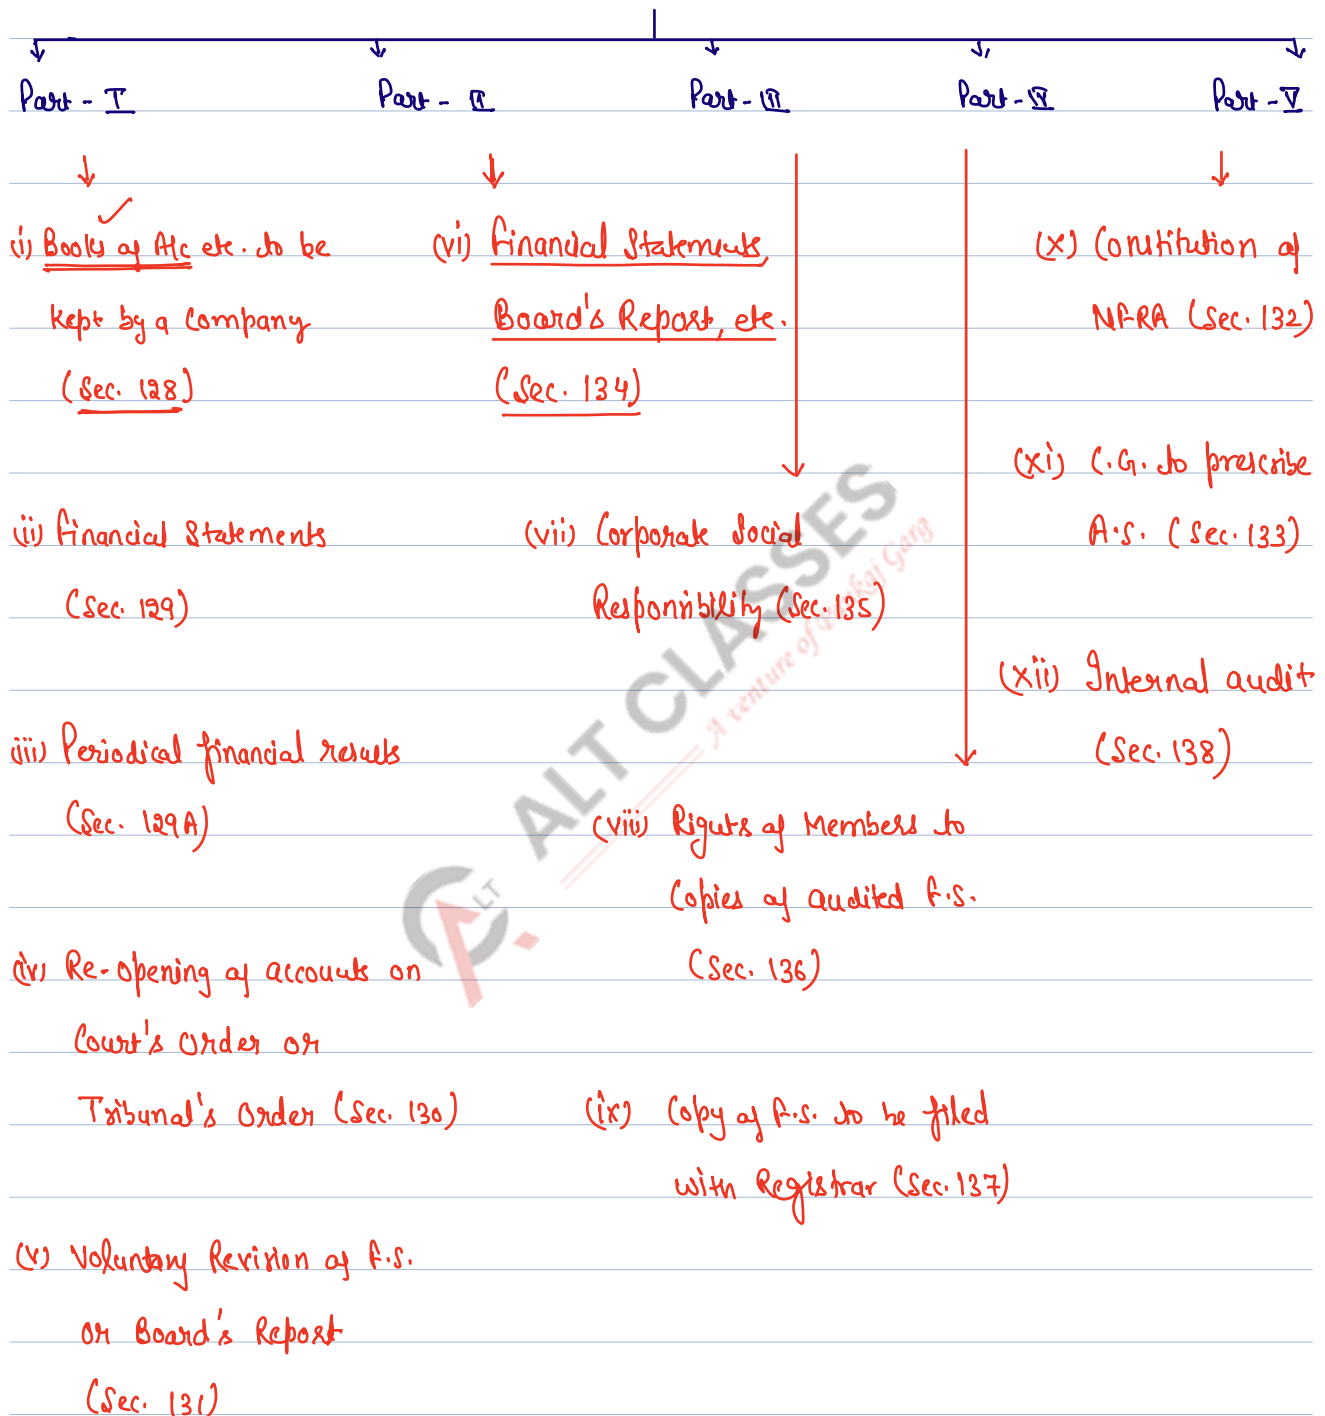 Part - I
Part - II
Part - III
Part - IV
Part - V
(i) Books of A/c etc. to be
kept by a Company
(Sec. 128)
(ii) Financial Statements
(Sec. 129)
(iii) Periodical financial results
(Sec. 129A)
(iv) Re-opening of accounts on
Court's Order or
Tribunal's Order (Sec. 130)
(v) Voluntary Revision of F.S.
or Board's Report
(Sec. 131)
(vi) Financial Statements,
Board's Report, etc.
(Sec. 134)
(vii) Corporate Social
Responsibility (Sec. 135)
(viii) Rights of Members to
Copies of audited F.S.
(Sec. 136)
(ix) Copy of F.S. to be filed
with Registrar (Sec. 137)
(x) Constitution of
NFRA (Sec. 132)
(xi) C.G. to prescribe
A.S. (Sec. 133)
(xii) Internal audit
(Sec. 138)
ALT CLASSES
A venture of Pankaj Garg
LT